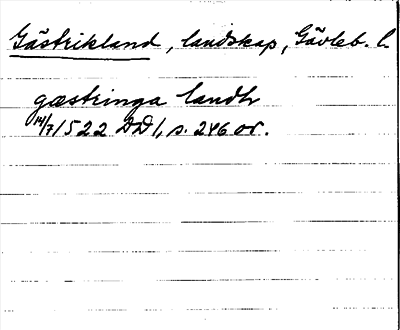 Gästrikland, landskap, Gävleb. l.
gæstringa landh
14/7 1522 DD 1, s. 246 or.